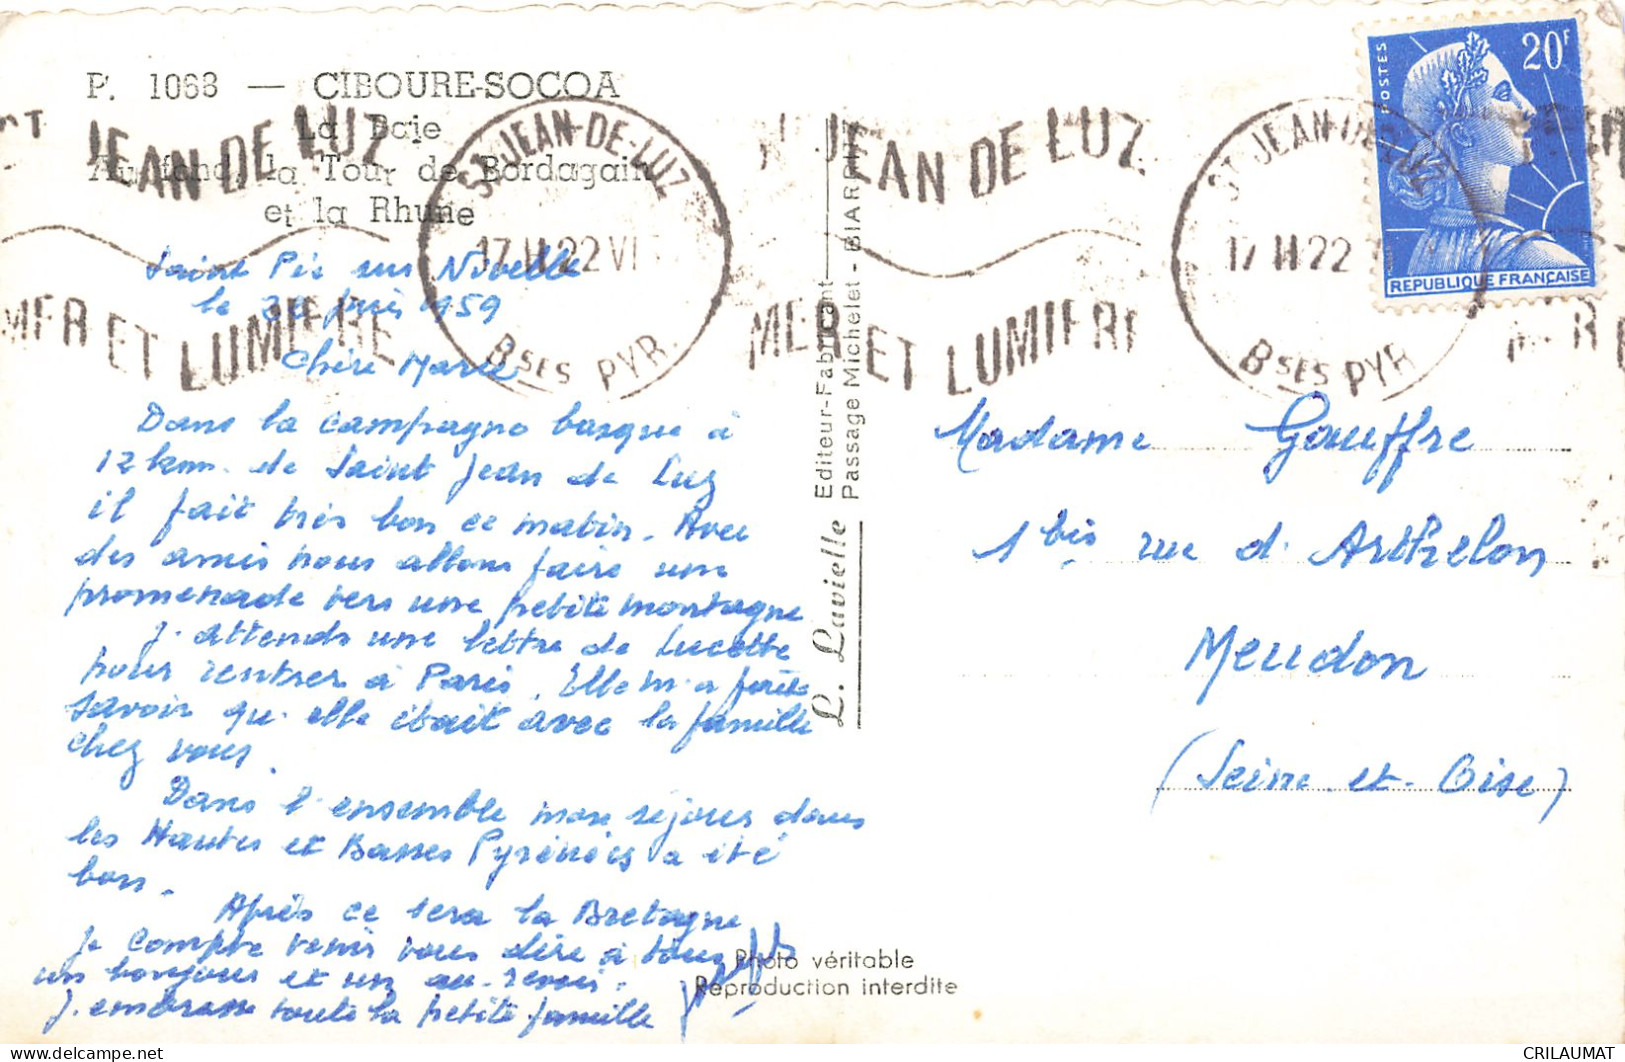 P. 1088 — CIBOURE-SOCOA
La Baie
Au fond, la Tour de Bordagain
et la Rhune
ST JEAN DE LUZ
MER ET LUMIERE
ST JEAN-DE-LUZ
17 H 22 VI
BSES PYR.
JEAN DE LUZ
MER ET LUMIERE
ST JEAN-DE-LUZ
17 H 22
BSES PYR
POSTES
20F
REPUBLIQUE FRANÇAISE
Saint Pée sur Nivelle
le 22 juin 1959
Chère Marie
Dans la campagne basque à
12 km. de Saint Jean de Luz
il fait très bon ce matin. Avec
des amis nous allons faire une
promenade vers une petite montagne.
J'attends une lettre de Lucette
pour rentrer à Paris. Elle m'a fait
savoir qu'elle était avec la famille
chez vous.
Dans l'ensemble mon séjour dans
les Hautes et Basses Pyrénées a été
bon.
Après ce sera la Bretagne
je compte venir vous dire à tous
un bonjour et un au-revoir.
J'embrasse toute la petite famille
L. Lavielle Editeur-Fabricant
Passage Michelet - BIARRITZ
Madame Gouffre
1 bis rue d'Arthelon
Meudon
(Seine-et-Oise)
Photo véritable
Reproduction interdite
CRILAUMAT